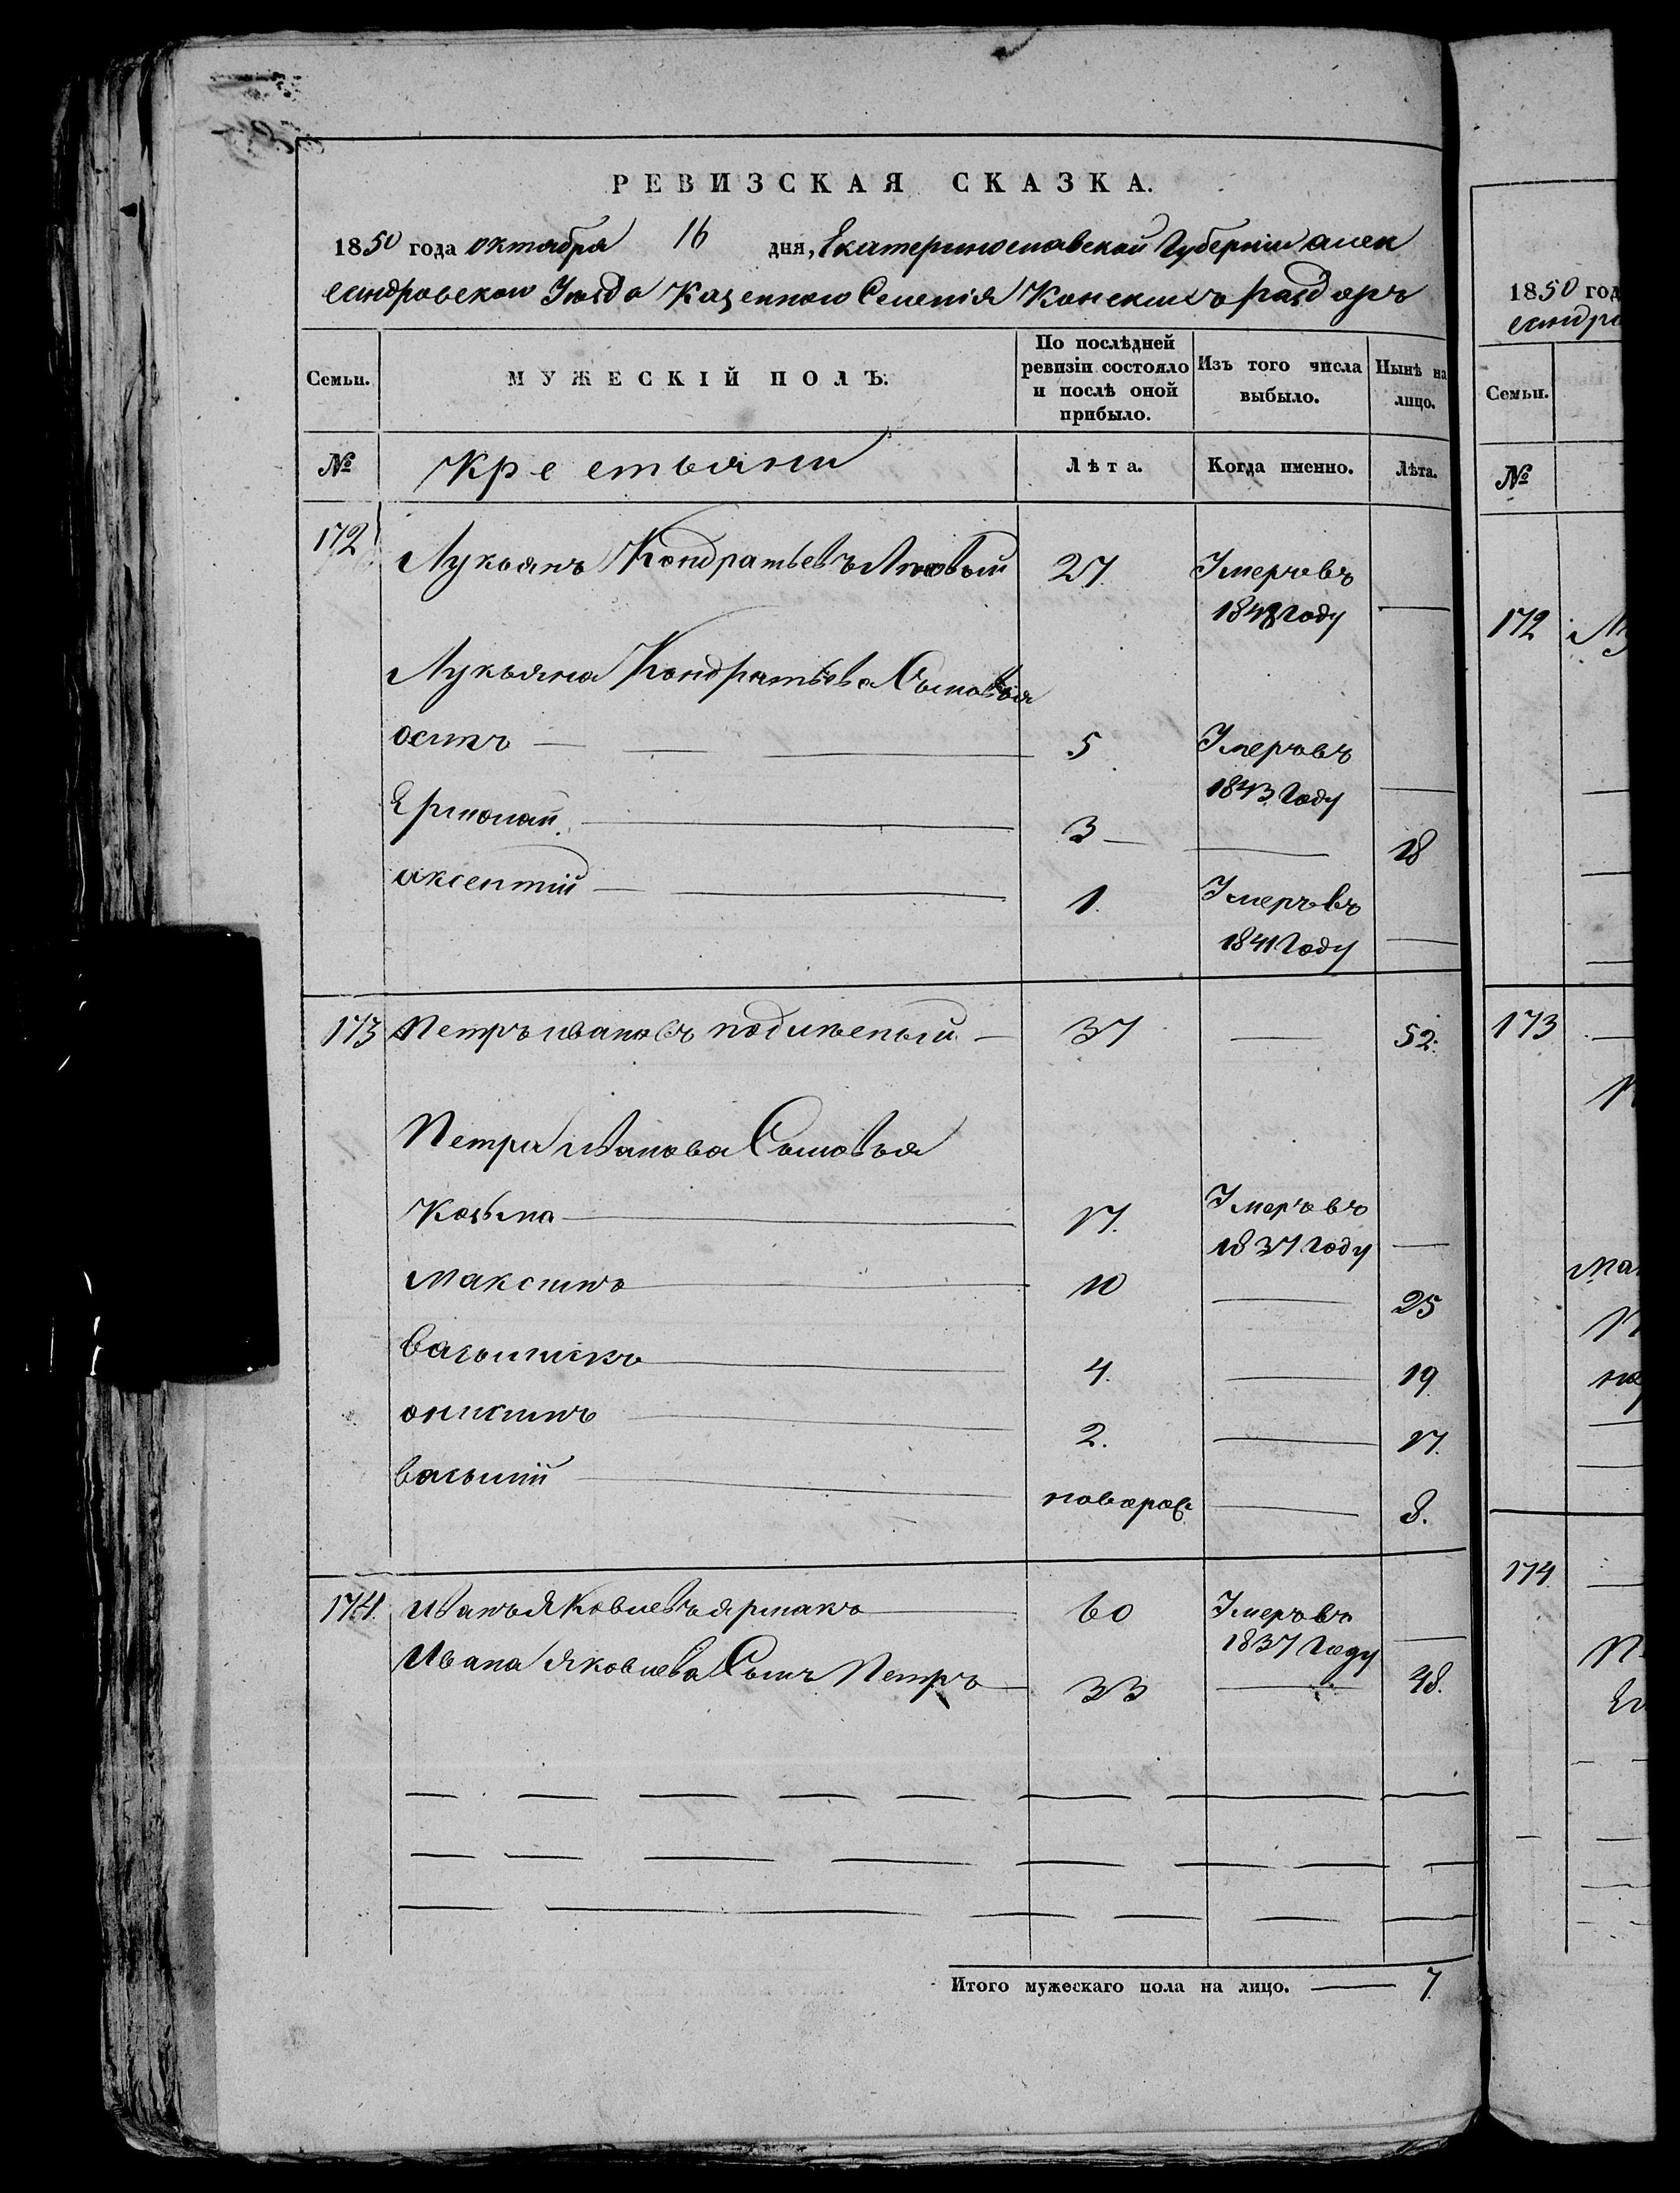 РЕВИЗСКАЯ СКАЗКА.
1850 года октября 16 дня, Екатеринославской Губерніи алек
сандровскои Уезда Казенного Селенія Конскихъ раздоръ
Семьи. МУЖЕСКІЙ ПОЛЪ. По послѣдней ревизіи состояло и послѣ оной прибыло. Изъ того числа выбыло. Нынѣ на лицо.
№ Крестьяни Лѣта. Когда именно. Лѣта.
172 Лукьянъ Кондратьевъ 27. Умеръ въ
1848 году —
Лукьяна Кондратьева Сыновья
осипъ 5 Умеръ въ
1843 году —
Ермолай 3 — 18
аксентий 1. Умеръ въ
1841 году —
173 Петръ ивановъ 37 — 52.
Петра иванова Сыновья
Козьма 17. Умеръ въ
1837 году —
максимъ 10 — 25
4. — 19
онисимъ 2. — 17.
василий новорож — 8.
174. иванъ Яковлевъ ярмакъ 60 Умеръ въ
1837 году —
Ивана Яковлева Сынъ Петръ 33 — 48.
Итого мужескаго пола на лицо. — 7
1850 год
сандро
Семьи.
№
172
173
174